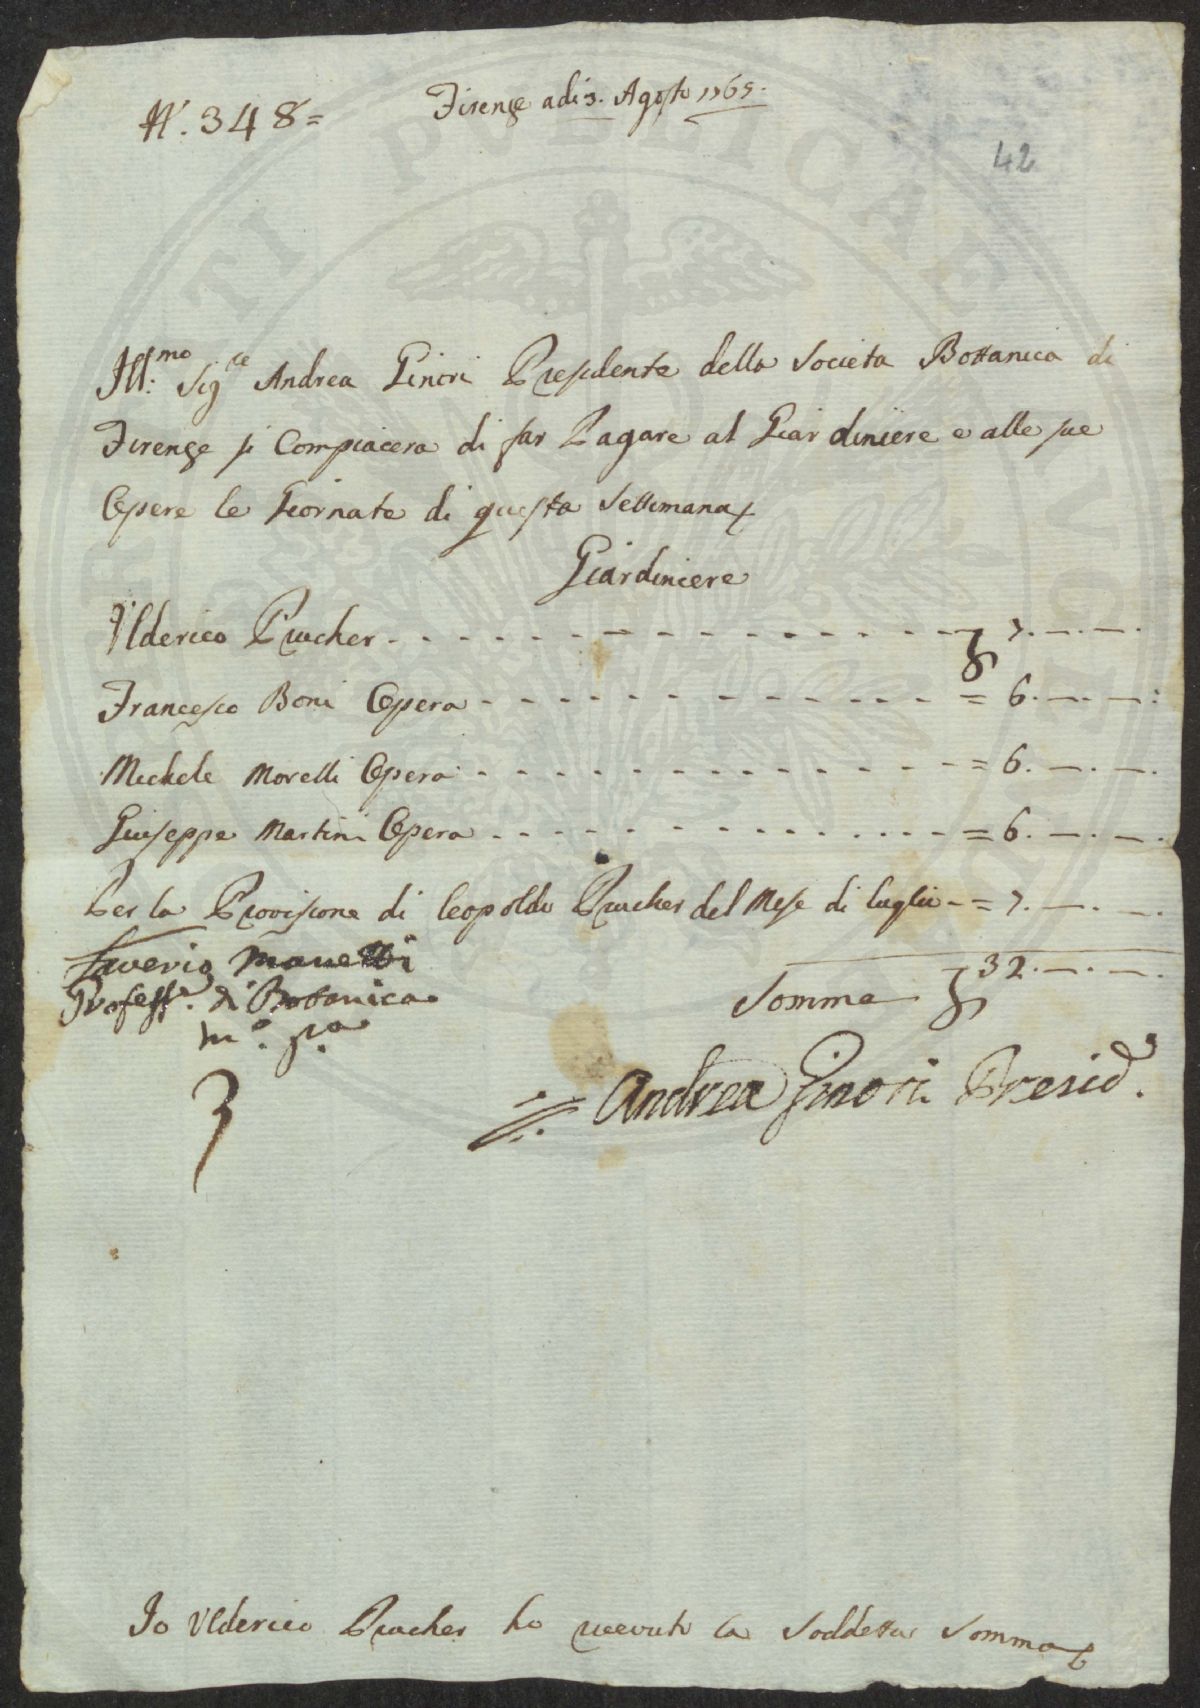 N. 348=
Firenze adi 3. Agosto 1765.
42
Ill:mo Sigre Andrea Ginori Presidente della Societa Bottanica di
Firenze si Compiacera di far Pagare al Giardiniere e alle sue
Opere le Giornate di questa Settimana
Giardiniere
Ulderico Prucher - - - - - - - - - - 7. —. —.
Francesco Boni Opera - - - - - - - - - - = 6. —. —.
Michele Morelli Opera - - - - - - - - - - = 6. —. —.
Giuseppe Martini Opera - - - - - - - - - - = 6. —. —.
Per la Provisione di Leopoldo Prucher del Mese di Luglio - = 7. —. —.
Saverio Manetti
Profess.e di Botanica
m.o p.a
Somma 32. —. —.
Andrea Ginori Presid.
Io Ulderico Prucher ho receuto la Soddetta Somma
TI PVBLICAE